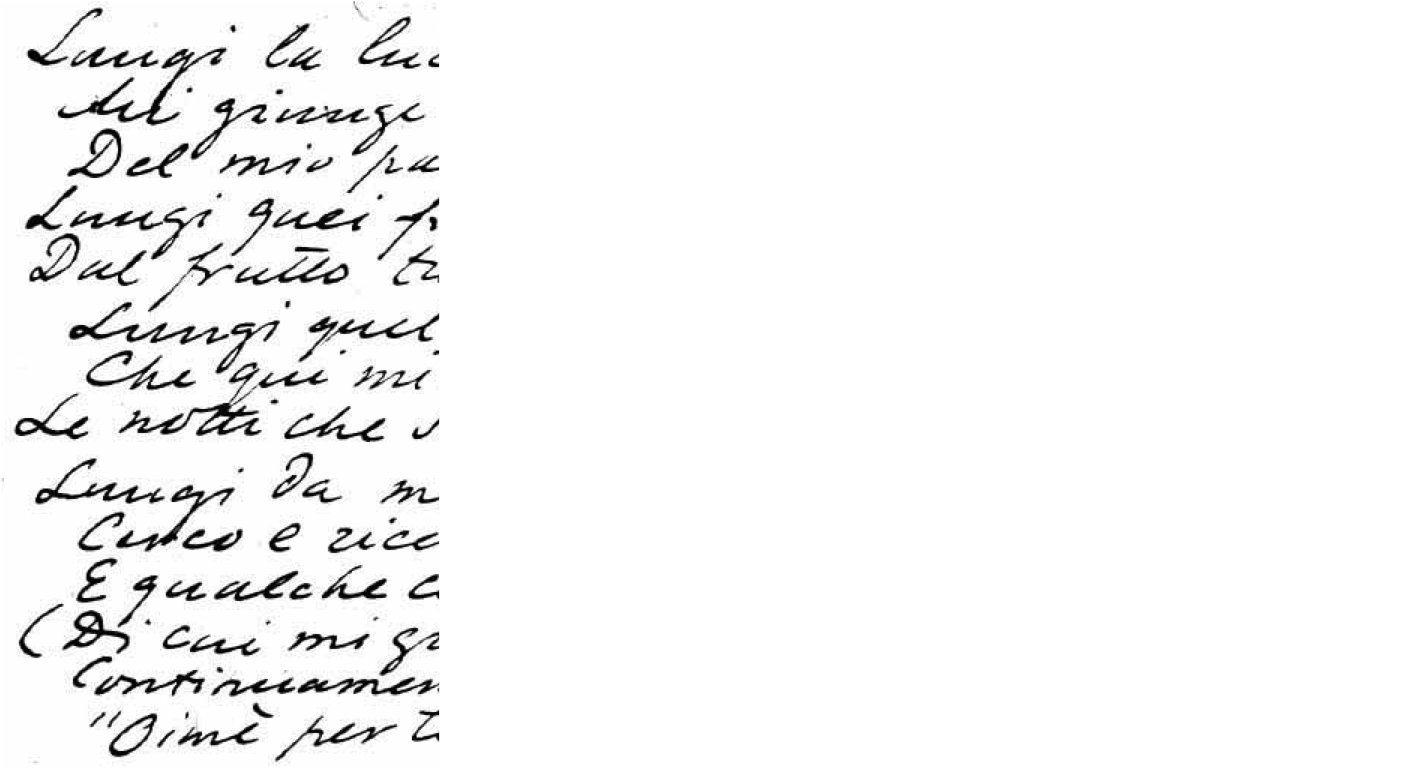 Lungi la luc
Mi giunge
Del mio pa
Lungi quei fr
Dal frutto tu
Lungi quel
Che qui mi
Le notti che s
Lungi da m
Cerco e rico
E qualche c
(Di cui mi gr
Continuamen
"Oimè per t